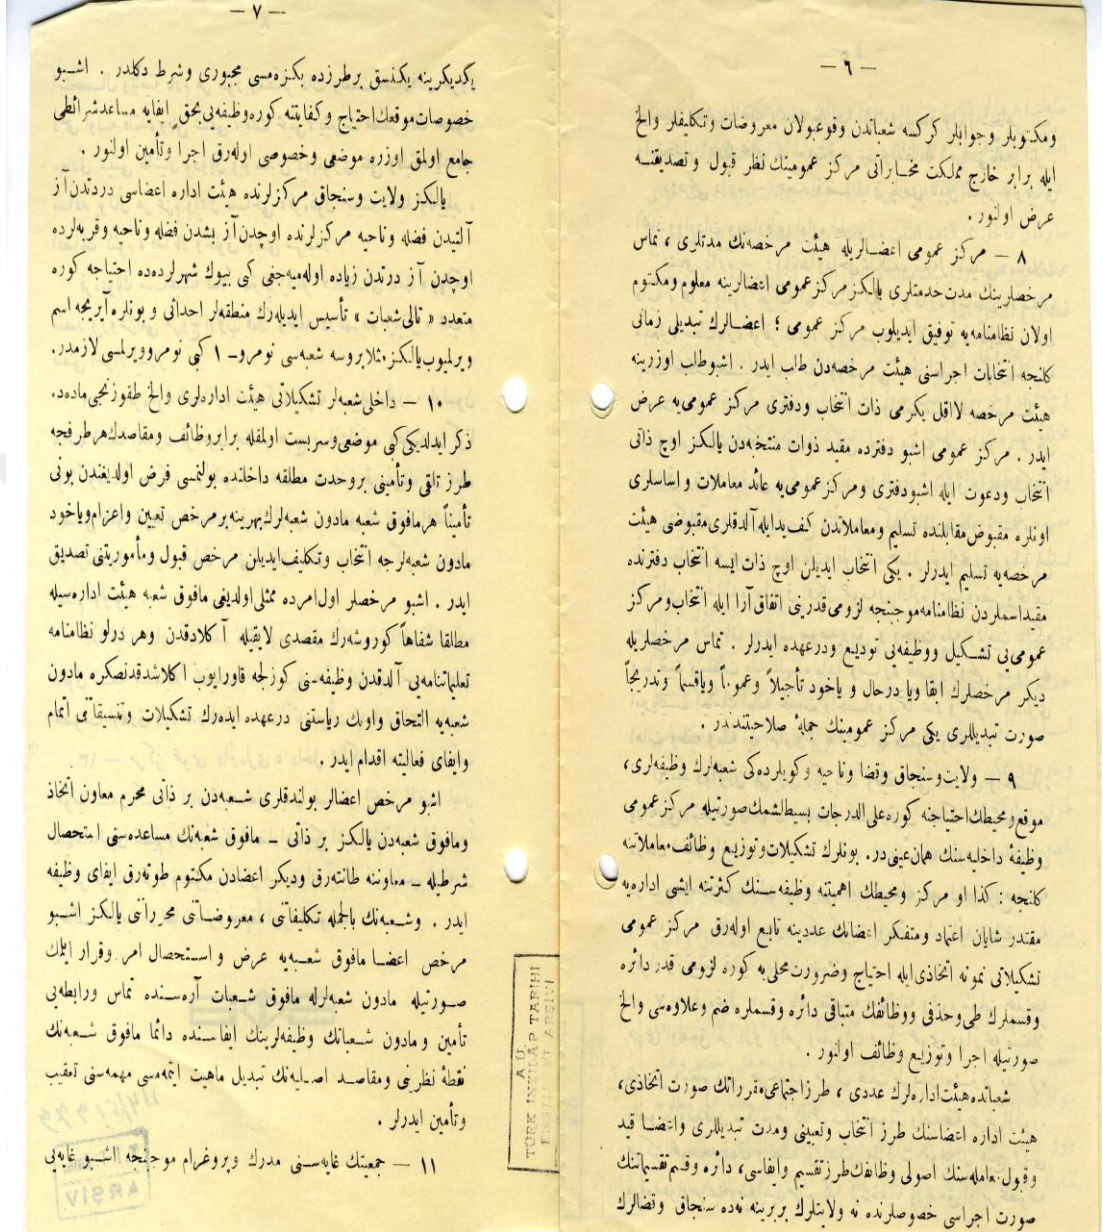 — ٦ —
ومكتوبلر وجوابلر كركسه شعباتدن وقوعبولان معروضات وتكليفلر والخ
ايله برابر خارج مملكت مخابراتى مركز عمومينك نظر قبول وتصديقنه
عرض اولنور .
٨ — مركز عمومى اعضالريله هيئت مرخصه‌نك مدتلرى ، تماس
مرخصلرينك مدت خدمتلرى يالكز مركز عمومى اعضالرينه معلوم ومكتوم
اولان نظامنامه‌يه توفيق ايديلوب مركز عمومى ؛ اعضالرك تبديلى زمانى
كلنجه انتخابات اجراسنى هيئت مرخصه‌دن طلب ايدر . اشبوطلب اوزرينه
هيئت مرخصه لااقل يكرمى ذات انتخاب ودفترى مركز عمومى‌يه عرض
ايدر . مركز عمومى اشبو دفترده مقيد ذوات منتخبه‌دن يالكز اوچ ذاتى
انتخاب ودعوت ايله اشبودفترى ومركزعمومى‌يه عائد معاملات واساسلرى
اونلره مقبوض‌مقابلنده تسليم ومعاملاتدن كف‌يدايله‌آلدقلرى‌مقبوضى هيئت
مرخصه‌يه تسليم ايدرلر . يكى انتخاب ايديلن اوچ ذات ايسه انتخاب دفترنده
مقيداسملردن نظامنامه‌موجبنجه لزومى‌قدرينى اتفاق آرا ايله انتخاب‌ومركز
عمومى‌يى تشكيل ووظيفه‌يى توديع ودرعهده ايدرلر . تماس مرخصلريله
ديكر مرخصلرك ابقا ويا درحال و ياخود تأجيلاً وعموماً وياقسماً وتدريجاً
صورت تبديللرى يكى مركز عمومينك جملۀ صلاحيتندندر .
٩ — ولايت‌وسنجاق وقضا وناحيه وكويلرده‌كى شعبه‌لرك وظيفه‌لرى،
موقع‌ومحيطك‌احتياجنه كوره‌على‌الدرجات بسيطلشمك‌صورتيله مركزعمومى
وظيفۀ داخليه‌سنك همان‌عينى‌در. بونلرك تشكيلات‌وتوزيع وظائف‌معاملاتنه
كلنجه : كذا او مركز ومحيطك اهميتنه وظيفه‌سنك كثرتنه ايشى اداره‌يه
مقتدر شايان اعتماد ومتفكر اعضانك عددينه تابع اوله‌رق مركز عمومى
تشكيلاتى نمونه اتخاذى‌ايله احتياج وضرورت‌محلى‌يه كوره لزومى قدر دائره
وقسملرك طى‌وحذفى ووظائفك متباقى دائره وقسملره ضم وعلاوه‌سى والخ
صورتيله اجرا وتوزيع وظائف اولنور .
شعباتده هيئت‌اداره‌لرك عددى ، طرزاجتماعى‌مقرراتك صورت اتخاذى،
هيئت اداره اعضاسنك طرز انتخاب وتعيينى ومدت تبديللرى واعضا قيد
وقبول‌معامله‌سنك اصولى وظائفك‌طرزتقسيم وايفاسى، دائره وقسم‌تقسيماتنك
صورت اجراسى خصوصلرنده نه ولايتلرك بربرينه نه‌ده سنجاق وقضالرك
— ٧ —
يكديكرينه يكنسق برطرزده بكزه‌مسى مجبورى وشرط دكلدر . اشبو
خصوصات‌موقعك‌احتياج وكفايتنه كوره‌وظيفه‌يى‌بحق ايفايه مساعدشرائطى
جامع اولمق اوزره موضعى وخصوصى اوله‌رق اجرا وتأمين اولنور .
يالكز ولايت وسنجاق مركزلرنده هيئت اداره اعضاسى دردتدن‌آز
آلتيدن فضله وناحيه مركزلرنده اوچدن‌آز بشدن فضله وناحيه وقريه‌لرده
اوچدن آز درتدن زياده اوله‌ميه‌جغى كى بيوك شهرلرده‌ده احتياجه كوره
متعدد « تالى شعبات » تأسيس ايديله‌رك منطقه‌لر احداثى و بونلره‌آيريجه اسم
ويرلميوب‌يالكز مثلابروسه شعبه‌سى نومرو–١ كى نومروويرلمسى لازمدر.
١٠ — داخلى شعبه‌لر تشكيلاتى هيئت اداره‌لرى والخ طقوزنجى‌ماده‌ده.
ذكر ايدلديكى‌كى موضعى‌وسربست اولمقله برابروظائف ومقاصدك‌هرطرفجه
طرز تلقى وتأمينى بروحدت مطلقه داخلنده بولنمسى فرض اولديغندن بونى
تأميناً هرمافوق شعبه مادون شعبه‌لرك‌بهرينه‌برمرخص تعيين واعزام‌وياخود
مادون شعبه‌لرجه انتخاب وتكليف‌ايديلن مرخص قبول ومأموريتنى تصديق
ايدر . اشبو مرخصلر اول‌امرده ممثلى‌اولديغى مافوق شعبه هيئت اداره‌سيله
مطلقا شفاهاً كوروشه‌رك مقصدى لايقيله آكلادقدن وهر درلو نظامنامه
تعليماتنامه‌يى آلدقدن وظيفه‌سنى كوزلجه قاورايوب اكلاشدقدنصكره مادون
شعبه‌يه التحاق واونك رياستنى درعهده ايده‌رك تشكيلات وتنسيقاتى اتمام
وايفاى فعاليته اقدام ايدر .
اشبو مرخص اعضالر بولندقلرى شعبه‌دن بر ذاتى محرم معاون اتخاذ
ومافوق شعبه‌دن يالكز بر ذاتى – مافوق شعبه‌نك مساعده‌سنى استحصال
شرطيله – معاوننه طانته‌رق وديكر اعضادن مكتوم طوته‌رق ايفاى وظيفه
ايدر . وشعبه‌نك بالجمله تكليفاتنى ، معروضاتنى محرراتنى يالكز اشبو
مرخص اعضا مافوق شعبه‌يه عرض و استحصال امر وقرار ايلمك
صورتيله مادون شعبه‌لرله مافوق شعبات آره‌سنده تماس ورابطه‌يى
تأمين ومادون شعباتك وظيفه‌لرينك ايفاسنده دائما مافوق شعبه‌نك
نقطۀ نظرينى ومقاصد اصليه‌نك تبديل ماهيت ايتمه‌مسى مهمه‌سنى تعقيب
وتأمين ايدرلر .
١١ — جمعيتك غايه‌سنى مدرك وپروغرام موجبنجه اشبو غايه‌يى
A.Ü.
TÜRK İNKILÂP TARİHİ
ARŞİVİ
ARŞİV